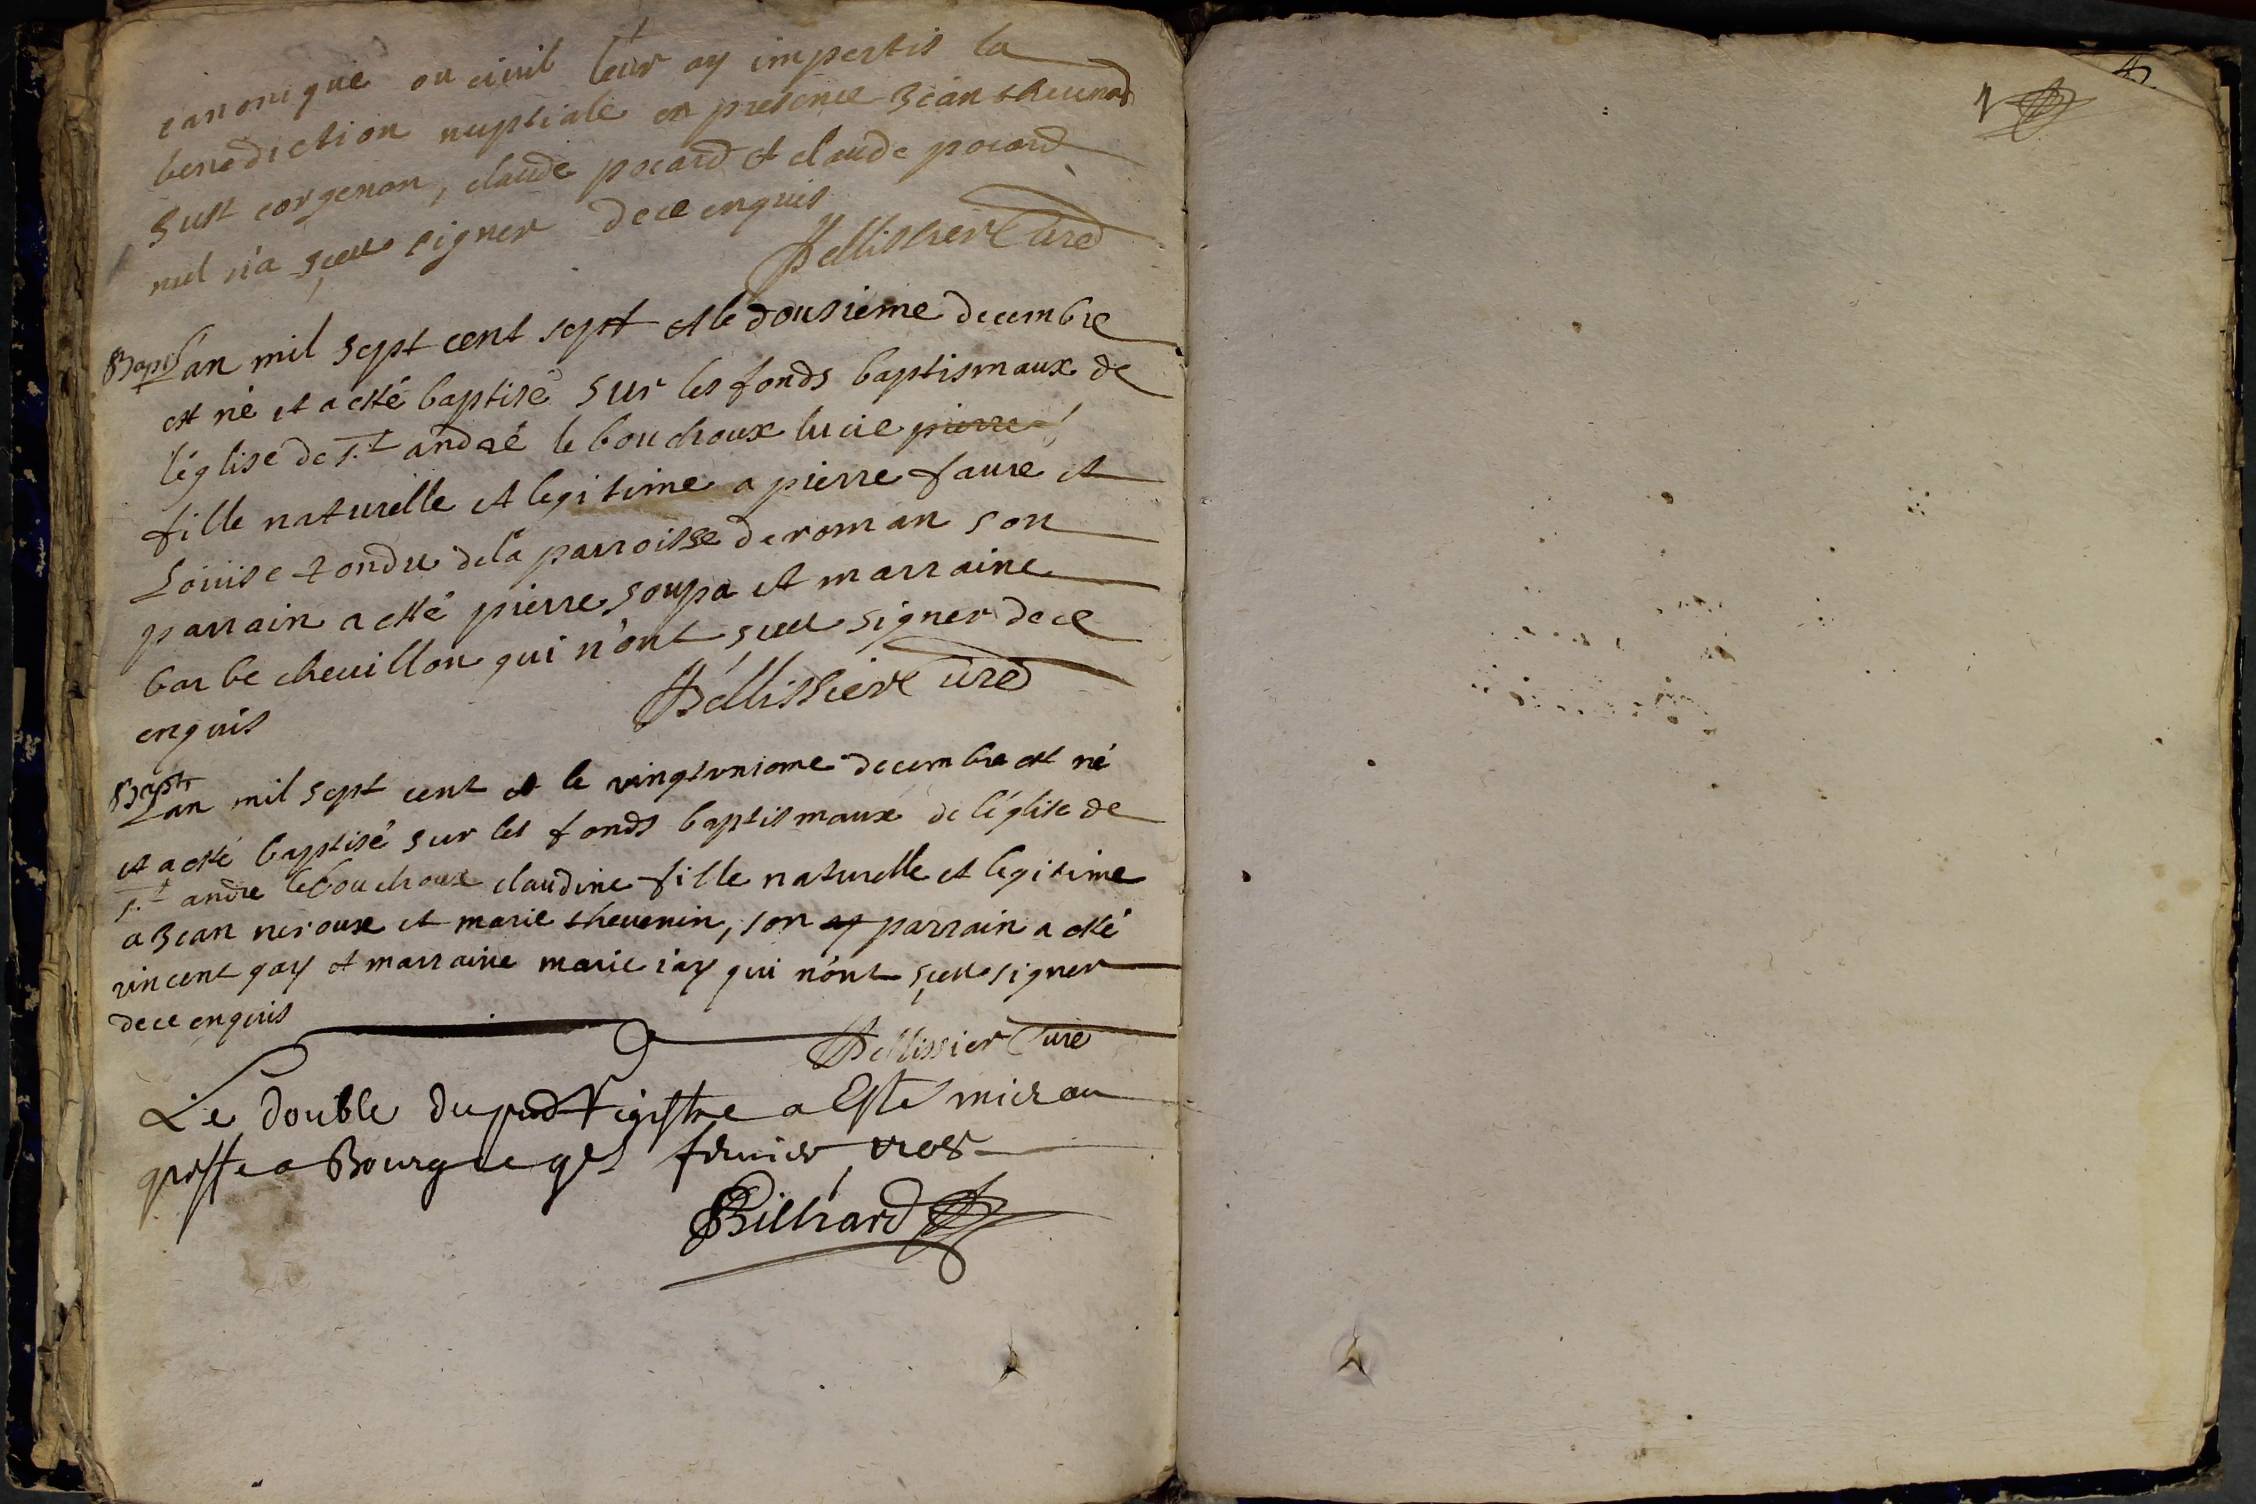 canonique ou civil leur ay impertis la
benediction nuptiale en presence Jean thevenod
Just corgenon, claude pocard et claude pocard
nul n'a sceu signer de ce enquis
Pellissier Curé
Bapt. Lan mil sept cent sept et le dousieme decembre
est né et a esté baptisé sur les fonds baptismaux de
l'église de St andré le bouchoux lucie pierre
fille naturelle et legitime a pierre faure et
Louise tondu de la parroisse de roman son
parrain a esté pierre soupa et marraine
barbe chevillon qui n'ont sceu signer de ce
enquis
Pellissier Curé
Bapt. Lan mil sept cent et le vingtunieme decembre est né
et a esté baptisé sur les fonds baptismaux de l'église de
St andre le bouchoux claudine fille naturelle et legitime
a Jean neroux et marie thevenin, son parrain a esté
vincent gay et marraine marie iay qui n'ont sceu signer
de ce enquis
Pellissier Curé
Le double du pnt Registre a Esté mis au
greffe a Bourg le fevrier 1708
Billiard